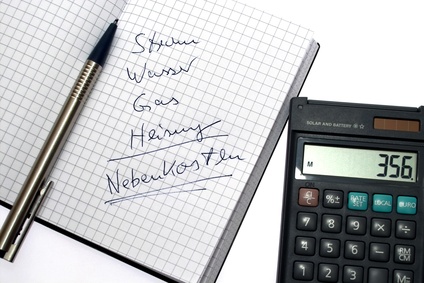 Strom
Wasser
Gas
Heizung
Nebenkosten
SOLAR AND BATTERY
M 356.
%± RATE SET LOCAL EURO
7 8 9 × RM CM
4 5 6
1 2 3